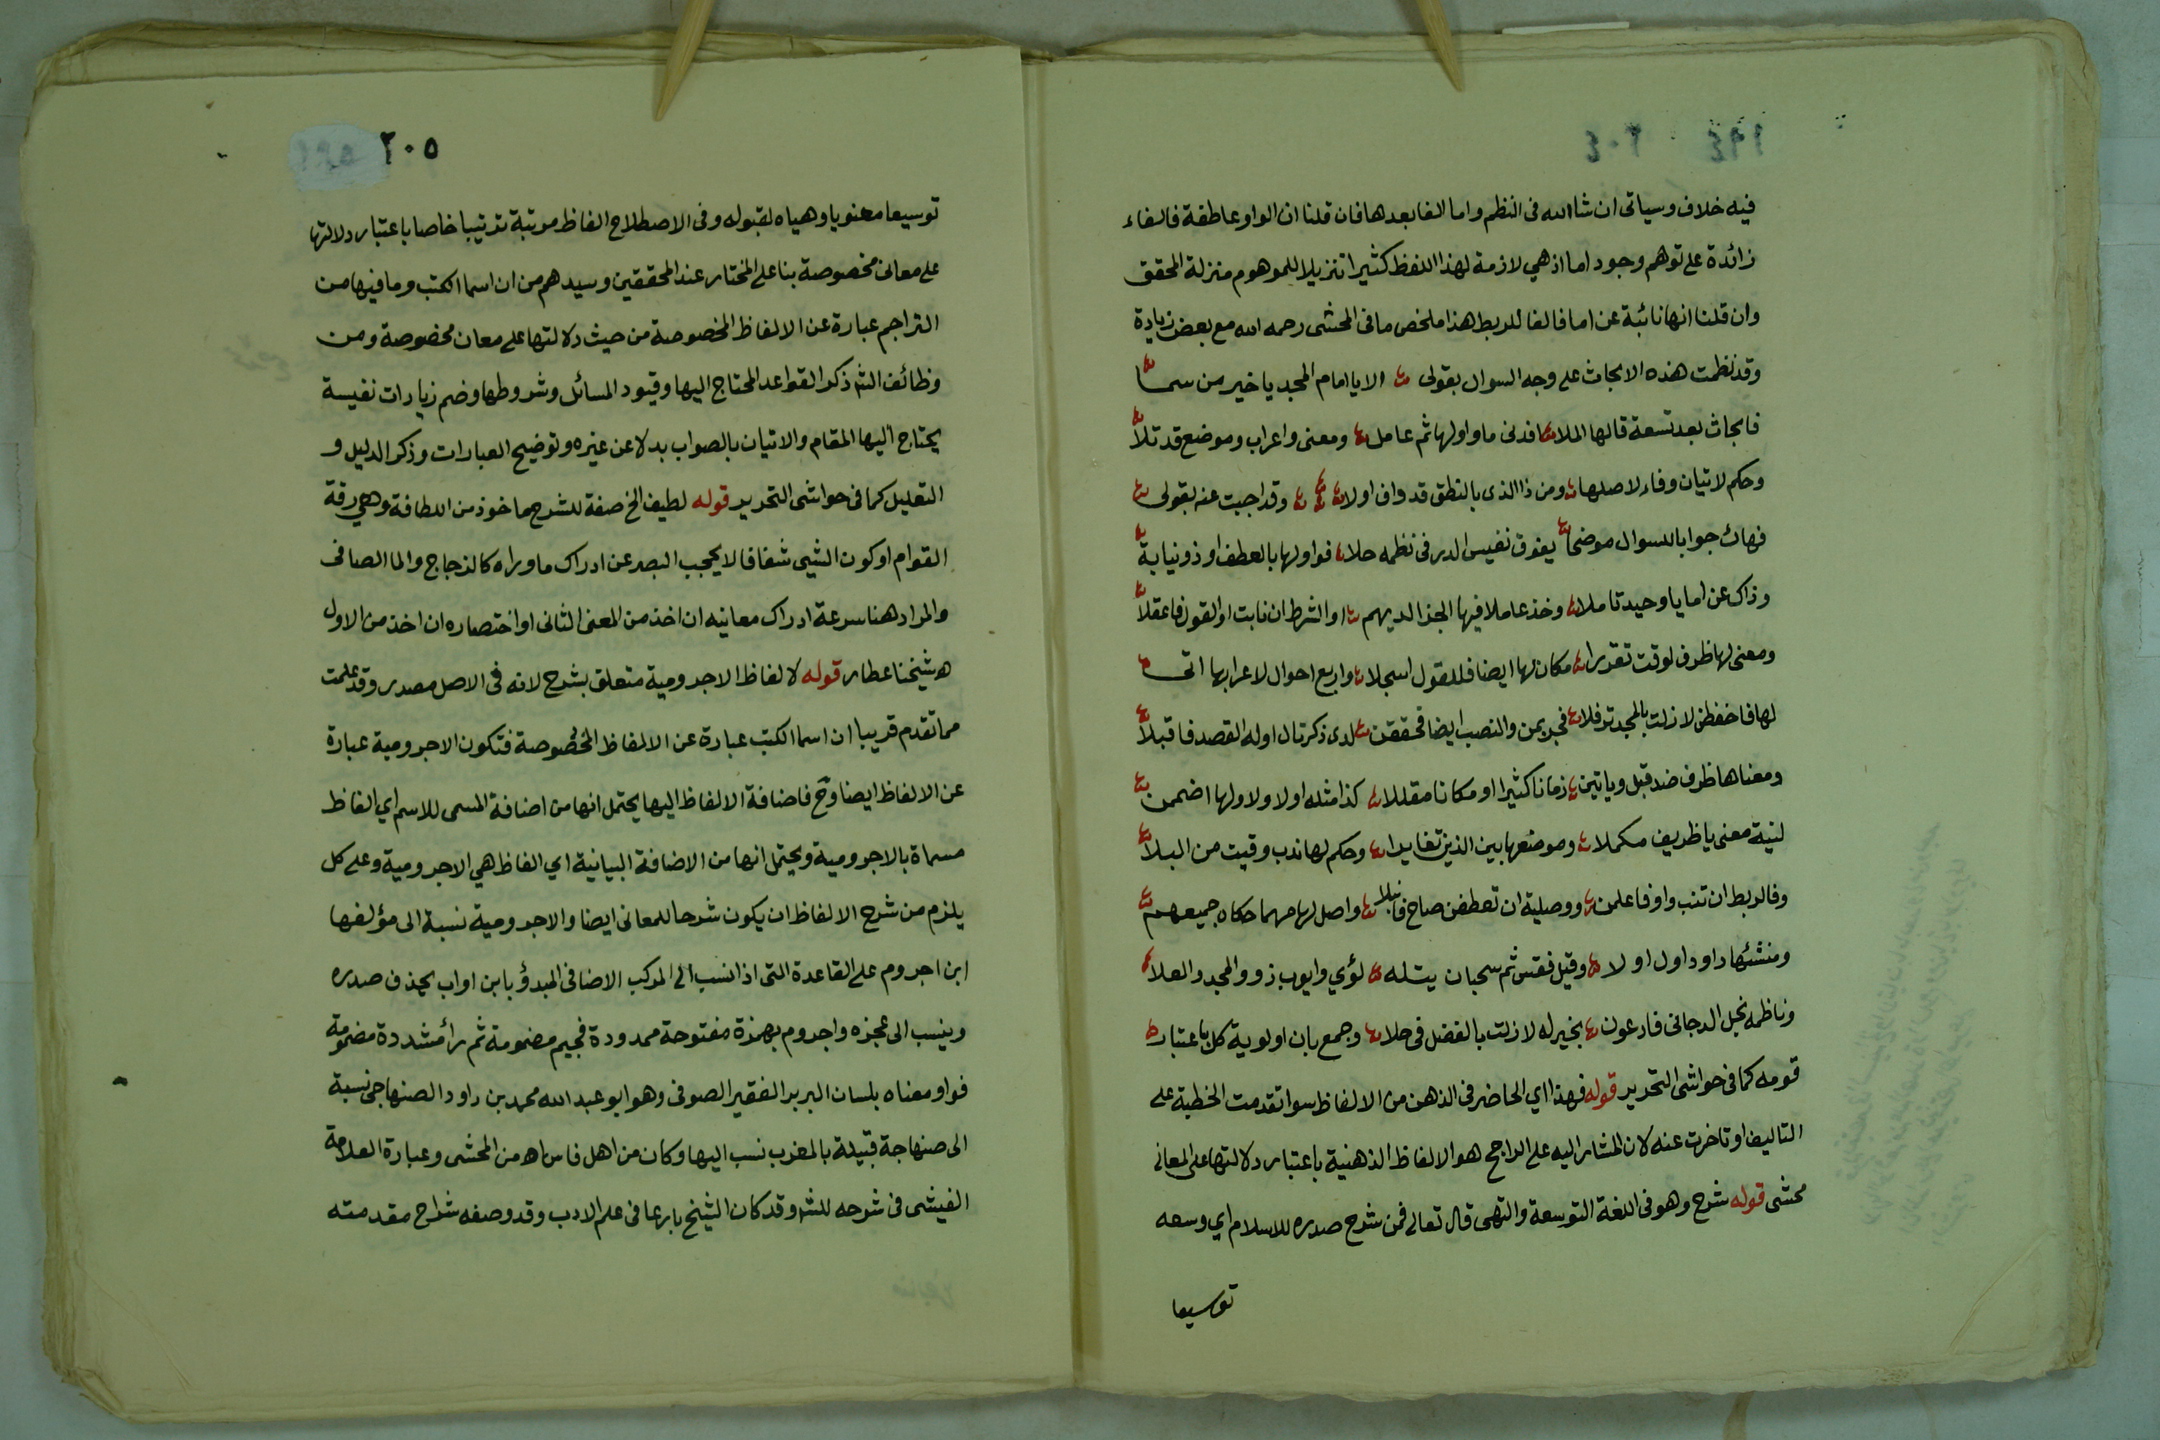 ١٩٤ ٢٠٤
فيه خلاف وسياتى ان شاالله فى النظم واما الفا بعدها فان قلنا ان الواو عاطفة فالفاء
زائدة على توهم وجود اما اذ هي لازمة لهذا اللفظ كثيرا تنزيلا للموهوم منزلة المحقق
وان قلنا انها نائبة عن اما فالفا للربط هذا ملخص ما فى المحشى رحمه الله مع بعض زيادة
وقد نظمت هذه الابحاث على وجه السوال بقولى الا يا امام المجد يا خير من سما
فابحاث بعد تسعة قالها الملا افدنى ما واو لها ثم عامل ومعنى واعراب وموضع قد تلا
وحكم لاتيان وفاء لاصلها ومن ذا الذى بالنطق قد واف اولا وقد اجبت عنه بقولى
فهاك جوابا للسوال موضحا يفوق نفيس الدر فى نظمه حلا فواو لها بالعطف او ذو نيابة
وذاك عن اما يا وحيد تاملا وخذ عاملا فيها الجزا لديهم او الشرط ان نابت او القول فاعقلا
ومعنى لها ظرف لوقت تقررا مكان لها ايضا فللقول اسجلا واربع احوال لاعرابها اتى
لها فاحفظن لازلت بالمجد ترفلا فجر بمن والنصب ايضا تحققن لدى ذكر تال اوله القصد فاقبلا
ومعناها ظرف ضد قبل وياتين زمانا كثيرا او مكانا مقللا كذا مثله اولا ولا ولها اضممن
لنية معنى يا ظريف مكملا وموضعها بين الذين تغايرا وحكم لها ندب وقيت من البلا
وفا لربط ان تنب واو فاعلمن ووصلية ان تعطفن صاح فانبلا واصل لها مهما حكاه جميعهم
ومنشئها داود اول اولا وقيل فقس ثم سحبان يتله لؤي وايوب ذوو المجد والعلا
وناظمه نجل الدجانى فادعون بخير له لازلت بالفضل فى حلا وجمع بان اولوية كل باعتبار
قومه كما فى حواشى التحرير قوله فهذا اي الحاضر فى الذهن من الالفاظ سوا تقدمت الخطبة على
التاليف او تاخرت عنه لان المشار اليه على الراجح هو الالفاظ الذهنية باعتبار دلالتها على المعانى
محشى قوله شرح وهو فى اللغة التوسعة والتهى قال تعالى فمن شرح صدره للاسلام اي وسعه
توسيعا
٢٠٥
توسيعا معنويا وهياه لقبوله وفى الاصطلاح الفاظ مرتبة ترتيبا خاصا باعتبار دلالتها
على معانى مخصوصة بنا على المختار عند المحققين وسيدهم من ان اسما الكتب وما فيها من
التراجم عبارة عن الالفاظ المخصوصة من حيث دلالتها على معان مخصوصة ومن
وظائف الشر ذكر القواعد المحتاج اليها وقيود المسائل وشروطها وضم زيادات نفيسة
يحتاج اليها المقام والاتيان بالصواب بدلا عن غيره وتوضيح العبارات وذكر الدليل و
التعليل كما فى حواشى التحرير قوله لطيف الخ صفة للشرح ماخوذ من اللطافة وهي رقة
القوام او كون الشيى شفافا لا يحجب البصر عن ادراك ما وراه كالزجاج والما الصافى
والمراد هنا سرعة ادراك معانيه ان اخذ من المعنى الثانى او اختصاره ان اخذ من الاول
ه شيخنا عطار قوله لالفاظ الاجرومية متعلق بشرح لانه فى الاصل مصدر وقد علمت
مما تقدم قريبا ان اسما الكتب عبارة عن الالفاظ المخصوصة فتكون الاجرومية عبارة
عن الالفاظ ايضا وح فاضافة الالفاظ اليها يحتمل انها من اضافة المسمى للاسم اي الفاظ
مسماة بالاجرومية ويحتمل انها من الاضافة البيانية اي الفاظ هي الاجرومية وعلى كل
يلزم من شرح الالفاظ ان يكون شرحا للمعانى ايضا والاجرومية نسبة الى مؤلفها
ابن اجروم على القاعدة التى اذا نسب الى المركب الاضافى المبدؤ بابن او اب يحذف صدره
وينسب الى عجزه واجروم بهمزة مفتوحة ممدودة فجيم مضمومة ثم رأ مشددة مضمومة
فواو معناه بلسان البربر الفقير الصوفى وهو ابو عبد الله محمد بن داود الصنهاجى نسبة
الى صنهاجة قبيلة بالمغرب نسب اليها وكان من اهل فاس اه من المحشى وعبارة العلامة
الفيشى فى شرحه للشر وقد كان الشيخ بارعا فى علم الادب وقد وصفه شراح مقدمته